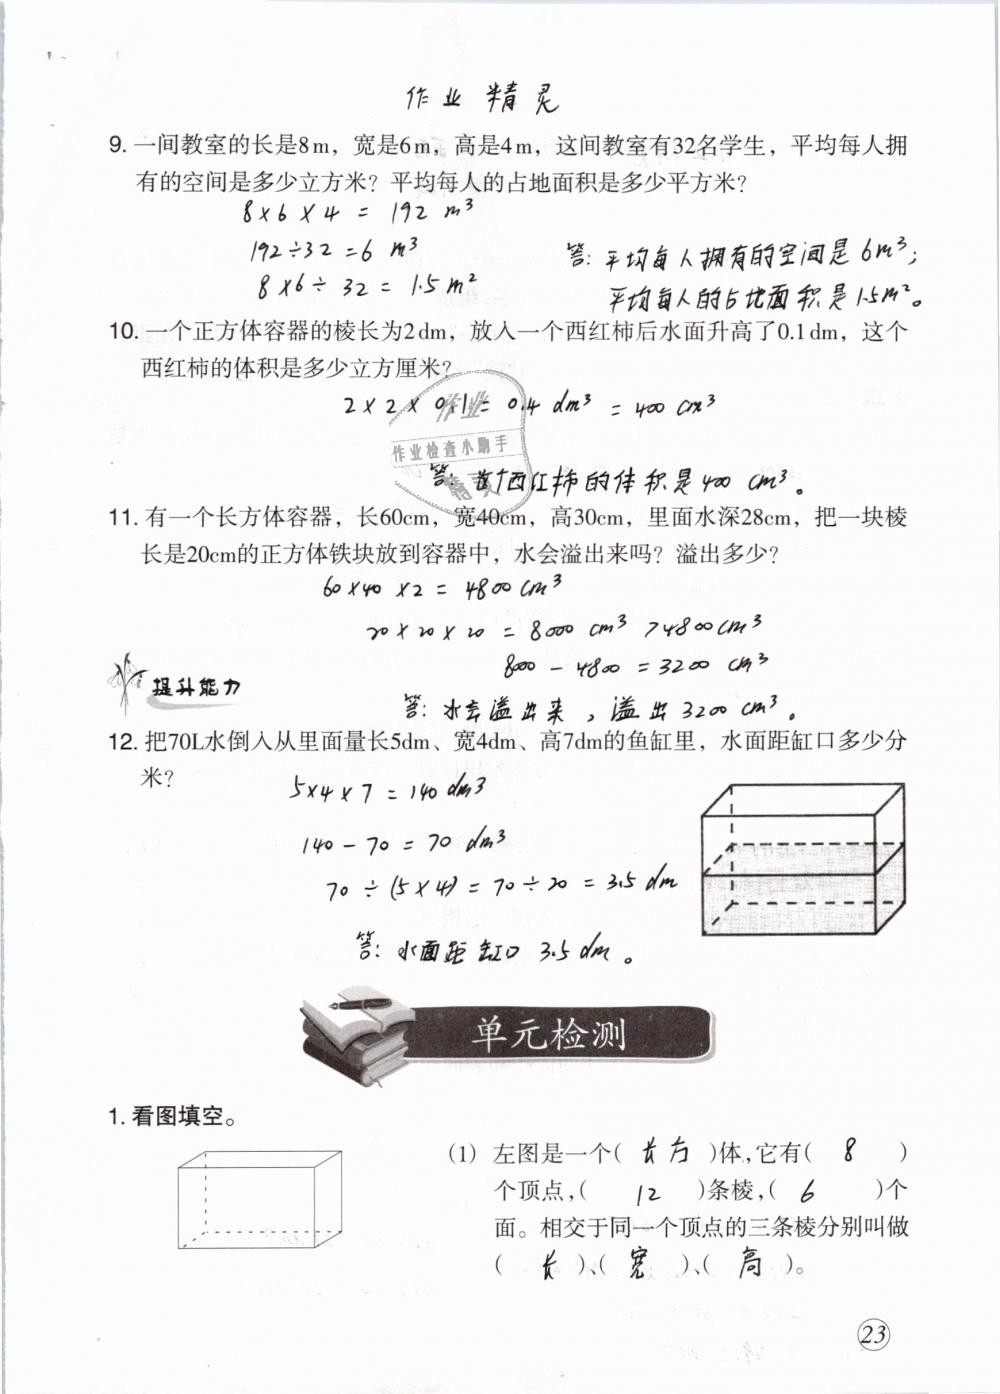 作业精灵
9. 一间教室的长是8m，宽是6m，高是4m，这间教室有32名学生，平均每人拥
有的空间是多少立方米？平均每人的占地面积是多少平方米？
8×6×4=192 m³
192÷32=6 m³
答：平均每人拥有的空间是6m³；
8×6÷32=1.5 m²
平均每人的占地面积是1.5m²。
10. 一个正方体容器的棱长为2dm，放入一个西红柿后水面升高了0.1dm，这个
西红柿的体积是多少立方厘米？
2×2×0.1=0.4 dm³=400 cm³
作业
作业检查小助手
精灵
答：这个西红柿的体积是400 cm³。
11. 有一个长方体容器，长60cm，宽40cm，高30cm，里面水深28cm，把一块棱
长是20cm的正方体铁块放到容器中，水会溢出来吗？溢出多少？
60×40×2=4800 cm³
20×20×20=8000 cm³>4800cm³
8000-4800=3200 cm³
提升能力
答：水会溢出来，溢出3200 cm³。
12. 把70L水倒入从里面量长5dm、宽4dm、高7dm的鱼缸里，水面距缸口多少分
米？
5×4×7=140 dm³
140-70=70 dm³
70÷(5×4)=70÷20=3.5 dm
答：水面距缸口3.5 dm。
单元检测
1. 看图填空。
(1) 左图是一个( 长方 )体，它有( 8 )
个顶点，( 12 )条棱，( 6 )个
面。相交于同一个顶点的三条棱分别叫做
( 长 )、( 宽 )、( 高 )。
23